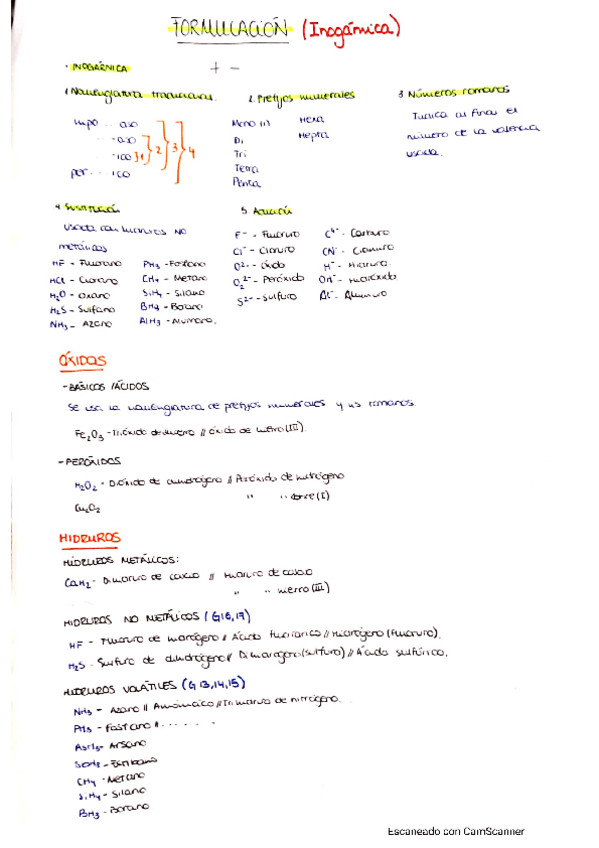 FORMULACIÓN (Inogánica)
· INOGÁRNICA + -
1. Nomenglatura tradicional.
hipo ... oso
... oso
... ico } 1 } 2 } 3 } 4
per ... ico
2. Prefijos numerales
Mono (1)
Di
Tri
Tetra
Penta
Hexa
Hepta
3. Números romanos
Indica al final el
número de la valencia
usada.
4. Sustitución
usada con hidruros NO
metálicos
HF - Fluorano
HCl - Clorano
H2O - Oxano
H2S - Sulfano
NH3 - Azano
PH3 - Fosfano
CH4 - Metano
SiH4 - Silano
BH3 - Borano
AlH3 - Alumano.
5. Adición
F⁻ - Fluoruro
Cl⁻ - Cloruro
O²⁻ - Óxido
O2²⁻ - Peróxido
S²⁻ - Sulfuro
C⁴⁻ - Carburo
CN⁻ - Cianuro
H⁻ - Hidruro
OH⁻ - Hidróxido
ÓXIDOS
- BÁSICOS /ÁCIDOS
Se usa la nomenglatura de prefijos numerales y nos romanos.
Fe2O3 - Trióxido de dihierro // óxido de hierro (III).
- PERÓXIDOS
H2O2 - Dióxido de dihidrógeno // Peróxido de hidrógeno
Cu2O2 " " cobre (I)
HIDRUROS
HIDRUROS METÁLICOS:
CaH2 - Dihidruro de calcio // Hidruro de calcio
" " hierro (III)
HIDRUROS NO METÁLICOS (G16,17)
HF - Fluoruro de hidrógeno // Ácido fluorhídrico // Hidrógeno (fluoruro).
H2S - Sulfuro de dihidrógeno // Dihidrógeno (sulfuro) // Ácido sulfhídrico.
HIDRUROS VOLÁTILES (G 13,14,15)
NH3 - Azano // Amoniaco // Trihidruro de nitrógeno.
PH3 - Fosfano // - - - - -
AsH3 - Arsano
CH4 - Metano
SiH4 - Silano
BH3 - Borano
Escaneado con CamScanner